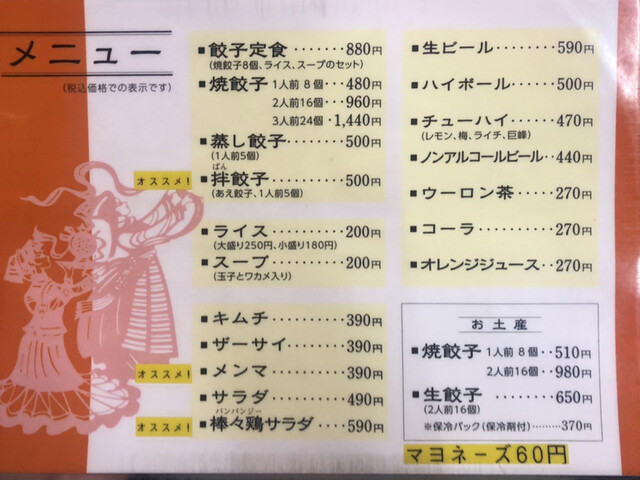 メニュー
(税込価格での表示です)
■餃子定食········880円
(焼餃子8個、ライス、スープのセット)
■焼餃子 1人前 8個···480円
2人前16個···960円
3人前24個·1,440円
■蒸し餃子········500円
(1人前5個)
オススメ!
ばん
■拌餃子·········500円
(あえ餃子、1人前5個)
■ライス·········200円
(大盛り250円、小盛り180円)
■スープ·········200円
(玉子とワカメ入り)
■キムチ·········390円
■ザーサイ········390円
オススメ!
■メンマ·········390円
■サラダ·········490円
オススメ!
バンバンジー
■棒々鶏サラダ····590円
■生ビール·······590円
■ハイボール·····500円
■チューハイ·····470円
(レモン、梅、ライチ、巨峰)
■ノンアルコールビール··440円
■ウーロン茶·····270円
■コーラ········270円
■オレンジジュース··270円
お土産
■焼餃子 1人前 8個··510円
2人前16個··980円
■生餃子·········650円
(2人前16個)
※保冷パック(保冷剤付)·········370円
マヨネーズ60円